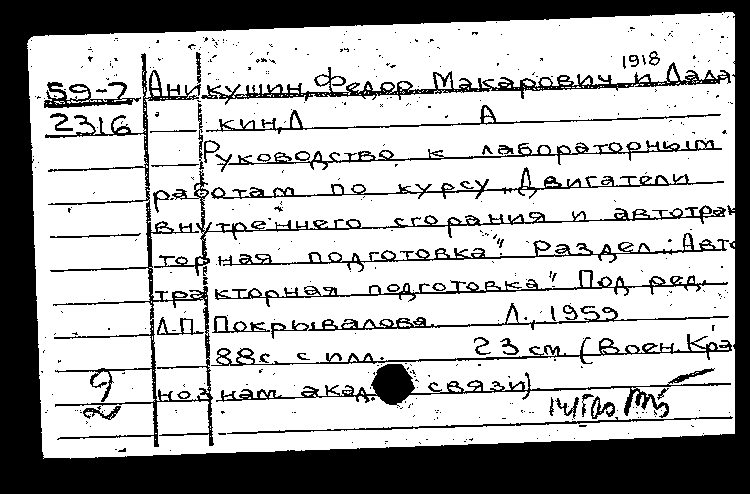 1918
59-7 Аникушин, Федор Макарович, и Лада-
2316 кин, Л А
Руководство к лабораторным
работам по курсу „Двигатели
внутреннего сгорания и автотрак
торная подготовка". Раздел: „Авто
тракторная подготовка" Под ред.
Л.П. Покрывалова. Л., 1959
88 с. с илл. 23 см. (Воен. Крас
нознам. акад. связи)